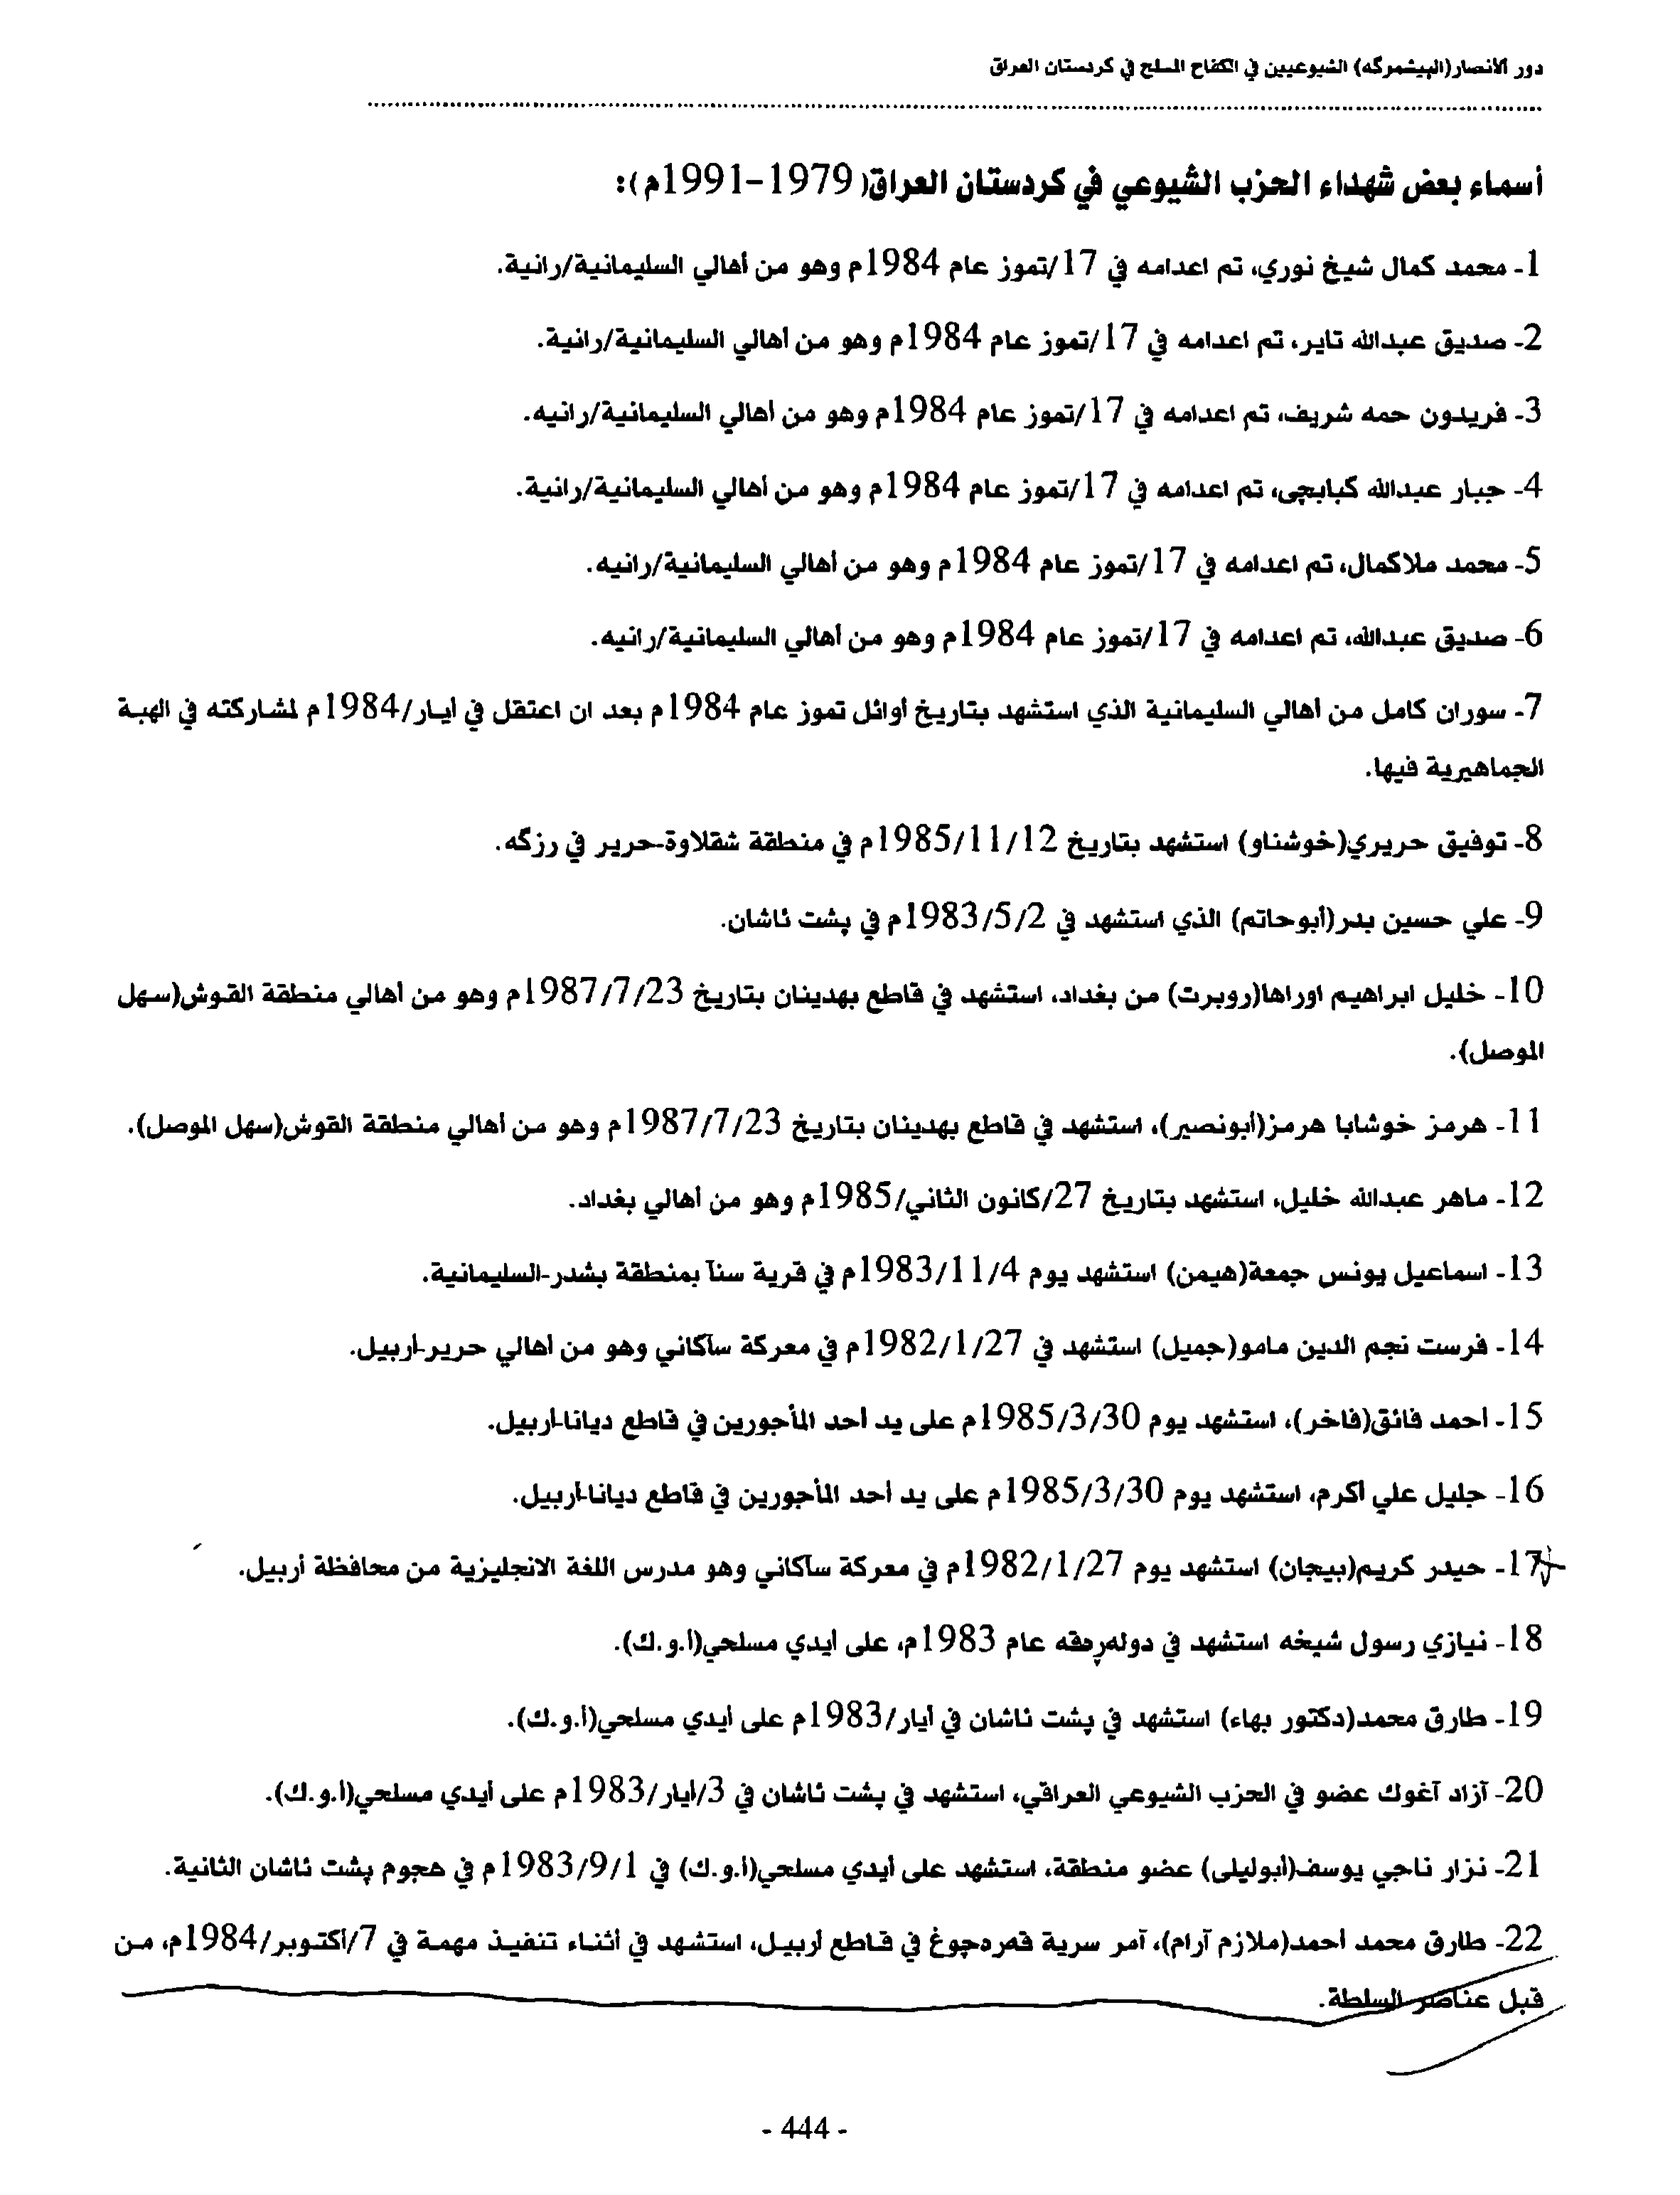 دور الانصار(الپيشمرگه) الشيوعيين في الكفاح المسلح في كردستان العراق
أسماء بعض شهداء الحزب الشيوعي في كردستان العراق(1979-1991م):
1- محمد كمال شيخ نوري، تم اعدامه في 17/تموز عام 1984م وهو من أهالي السليمانية/رانية.
2- صديق عبدالله تاير، تم اعدامه في 17/تموز عام 1984م وهو من أهالي السليمانية/رانية.
3- فريدون حمه شريف، تم اعدامه في 17/تموز عام 1984م وهو من أهالي السليمانية/رانيه.
4- جبار عبدالله كبابچى، تم اعدامه في 17/تموز عام 1984م وهو من أهالي السليمانية/رانية.
5- محمد ملاكمال، تم اعدامه في 17/تموز عام 1984م وهو من أهالي السليمانية/رانيه.
6- صديق عبدالله، تم اعدامه في 17/تموز عام 1984م وهو من أهالي السليمانية/رانيه.
7- سوران كامل من أهالي السليمانية الذي استشهد بتاريخ أوائل تموز عام 1984م بعد ان اعتقل في أيار/1984م لمشاركته في الهبة
الجماهيرية فيها.
8- توفيق حريري(خوشناو) استشهد بتاريخ 1985/11/12م في منطقة شقلاوة-حرير في رزگه.
9- علي حسين بدر(أبوحاتم) الذي استشهد في 1983/5/2م في پشت ئاشان.
10- خليل ابراهيم اوراها(روبرت) من بغداد، استشهد في قاطع بهدينان بتاريخ 1987/7/23م وهو من أهالي منطقة القوش(سهل
الموصل).
11- هرمز خوشابا هرمز(أبونصير)، استشهد في قاطع بهدينان بتاريخ 1987/7/23م وهو من أهالي منطقة القوش(سهل الموصل).
12- ماهر عبدالله خليل، استشهد بتاريخ 27/كانون الثاني/1985م وهو من أهالي بغداد.
13- اسماعيل يونس جمعة(هيمن) استشهد يوم 1983/11/4م في قرية سنآ بمنطقة بشدر-السليمانية.
14- فرست نجم الدين مامو(جميل) استشهد في 1982/1/27م في معركة سآكاني وهو من أهالي حرير-اربيل.
15- احمد فائق(فاخر)، استشهد يوم 1985/3/30م على يد احد المأجورين في قاطع ديانا-اربيل.
16- جليل علي اكرم، استشهد يوم 1985/3/30م على يد أحد المأجورين في قاطع ديانا-اربيل.
17- حيدر كريم(بيجان) استشهد يوم 1982/1/27م في معركة سآكاني وهو مدرس اللغة الانجليزية من محافظة أربيل.
18- نيازي رسول شيخه استشهد في دولەڕەقه عام 1983م، على ايدي مسلحي(ا.و.ك).
19- طارق محمد(دكتور بهاء) استشهد في پشت ئاشان في أيار/1983م على أيدي مسلحي(أ.و.ك).
20- آزاد آغوك عضو في الحزب الشيوعي العراقي، استشهد في پشت ئاشان في 3/أيار/1983م على أيدي مسلحي(ا.و.ك).
21- نزار ناجي يوسف(أبوليلى) عضو منطقة، استشهد على أيدي مسلحي(أ.و.ك) في 1983/9/1م في هجوم پشت ئاشان الثانية.
22- طارق محمد احمد(ملازم آرام)، آمر سرية قەرەچوغ في قاطع أربيل، استشهد في أثناء تنفيذ مهمة في 7/أكتوبر/1984م، من
قبل عناصر السلطة.
- 444 -